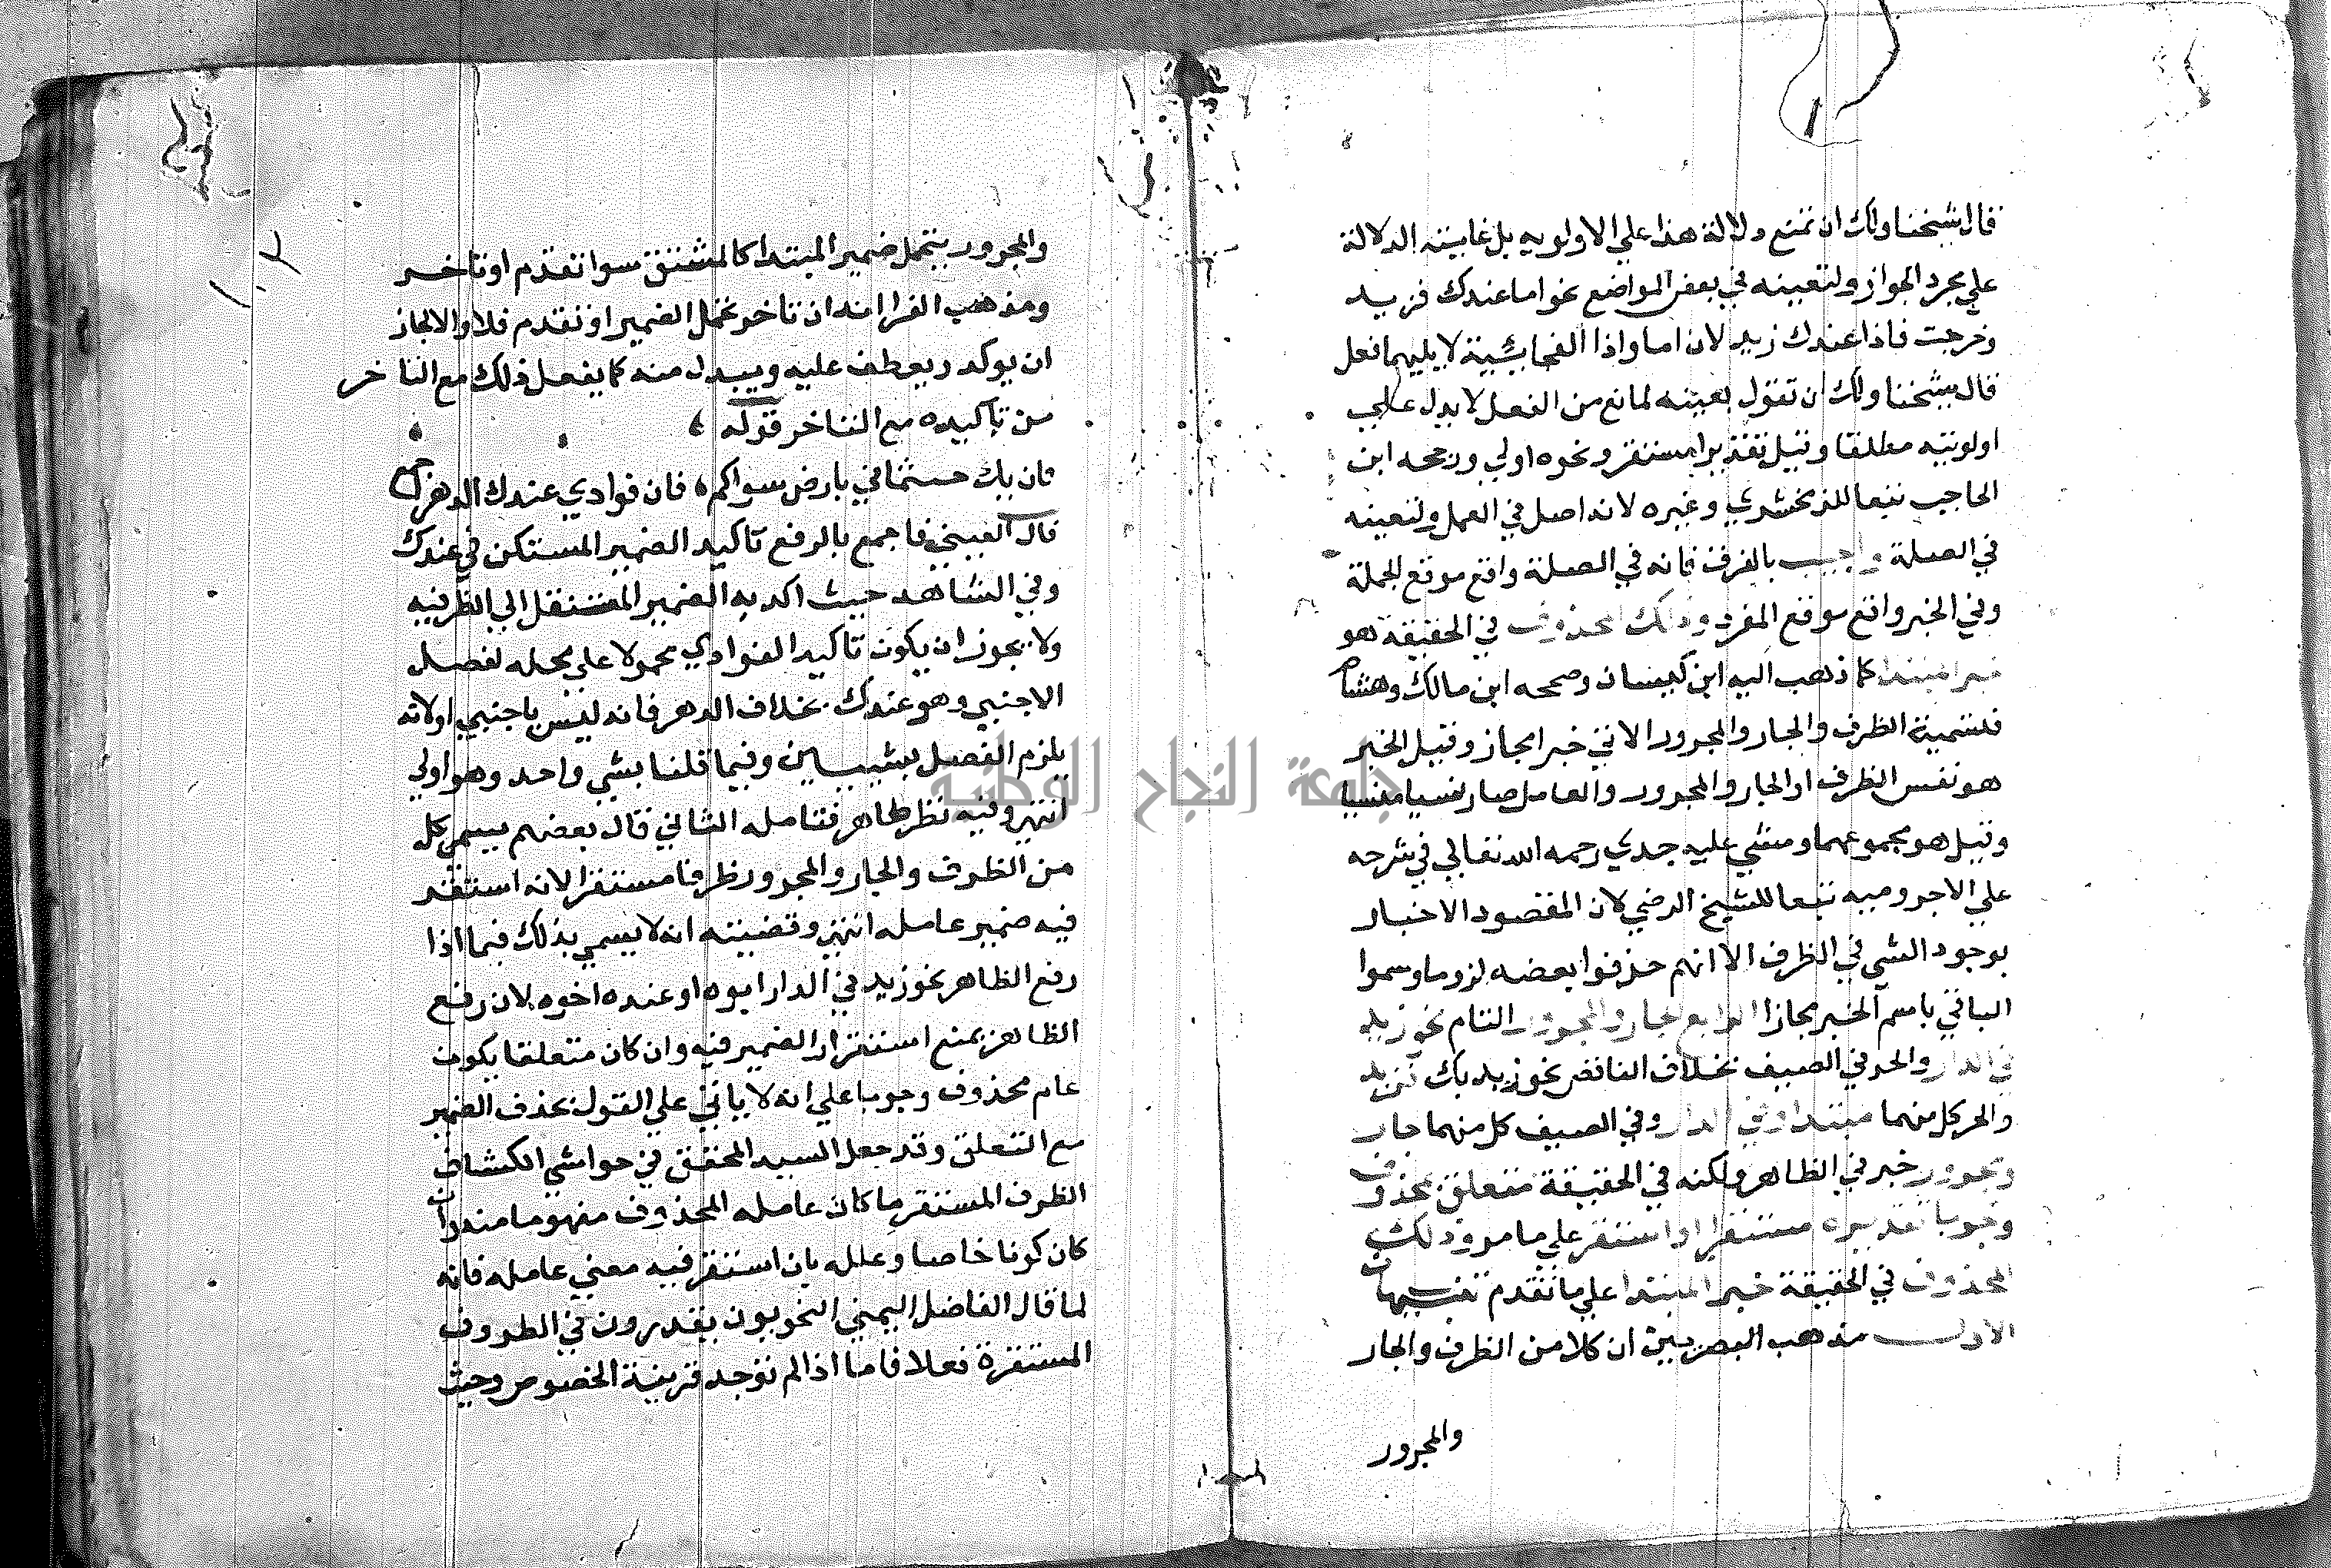 قال شيخنا ولك ان تمنع دلالة هذا علي الاولويه بل غايته الدلالة
علي مجرد الجواز ولتعينه في بعض المواضع نحو اما عندك فزيد
وخرجت فاذا عندك زيد لان اما واذا الفجائية لا يليهما فعل
قال شيخنا ولك ان تقول تعينه لمانع من الفعل لا يدل علي
اولويته مطلقا وقيل تقديرا مستقر ونحوه اولي ورجحه ابن
الحاجب تبعا للزمخشري وغيره لانه اصل في العمل ولتعينه
في الصلة واجيب بالفرق فانه في الصلة واقع موقع الجملة
وفي الخبر واقع موقع المفرد وذلك المحذوف في الحقيقة هو
خبر المبتدا كما ذهب اليه ابن كيسان وصححه ابن مالك وهشام
فتسمية الظرف والجار والمجرور الاتي خبرا مجاز وقيل الخبر
هو نفس الظرف او الجار والمجرور والعامل صار نسيا منسيا
وقيل هو مجموعهما ومشي عليه جدي رحمه الله تعالي في شرحه
علي الاجروميه تبعا للشيخ الرضي لان المقصود الاخبار
بوجود الشي في الظرف الا انهم حذفوا بعضه لزوما وسموا
الباقي باسم الخبر مجازا الرابع الجار والمجرور التام نحو زيد
في الدار والحر في الصيف بخلاف الناقص نحو زيد بك فزيد
والحر كل منهما مبتدا وفي الدار وفي الصيف كل منهما جار
ومجرور خبر في الظاهر ولكنه في الحقيقة متعلق بمحذوف
وجوبا تقديره مستقرا او استقر علي ما مر وذلك
المحذوف في الحقيقة خبر المبتدا علي ما تقدم تنبيهان
الاول مذهب البصريين ان كلا من الظرف والجار
والمجرور
والمجرور يتحمل ضمير المبتدا كالمشتق سوا تقدم او تاخر
ومذهب الفرا انه ان تاخر تحمل الضمير او تقدم فلا والا لجاز
ان يوكد ويعطف عليه ويبدل منه كما يفعل ذلك مع التاخر
من تأكيده مع التاخر قوله
فان يك جسثماني بارض سواكم فان فوادي عندك الدهر اجمع
قال العيني فاجمع بالرفع تأكيد الضمير المستكن في عندك
وفي الشاهد حيث اكد به الضمير المنتقل الي الظرفيه
ولا يجوز ان يكون تاكيد الفوادي محمولا علي محله لفصل
الاجنبي وهو عندك بخلاف الدهر فانه ليس باجنبي اولانه
يلزم الفصل بشييين وفيما قلنا بشي واحد وهو اولي
انتهي وفيه نظر ظاهر فتامله الثاني قال بعضهم يسمي كل
من الظرف والجار والمجرور ظرفا مستقرا لانه استقر
فيه ضمير عامله انتهي وقضيته انه لا يسمي بذلك فيما اذا
رفع الظاهر نحو زيد في الدار ابوه او عنده اخوه لان رفع
الظاهر يمنع استقرار الضمير فيه وان كان متعلقا بكون
عام محذوف وجوبا علي انه لا ياتي علي القول بحذف الضمير
مع التعلق وقد جعل السيد المحقق في حواشي الكشاف
الظرف المستقر ما كان عامله المحذوف مفهوما منه وان
كان كونا خاصا وعلله بان استقر فيه معني عامله فانه
لما قال الفاضل اليمني النحويون يقدرون في الظروف
المستقرة فعلا فاما اذا لم توجد قرينة الخصوص وحيث
جامعة النجاح الوطنية